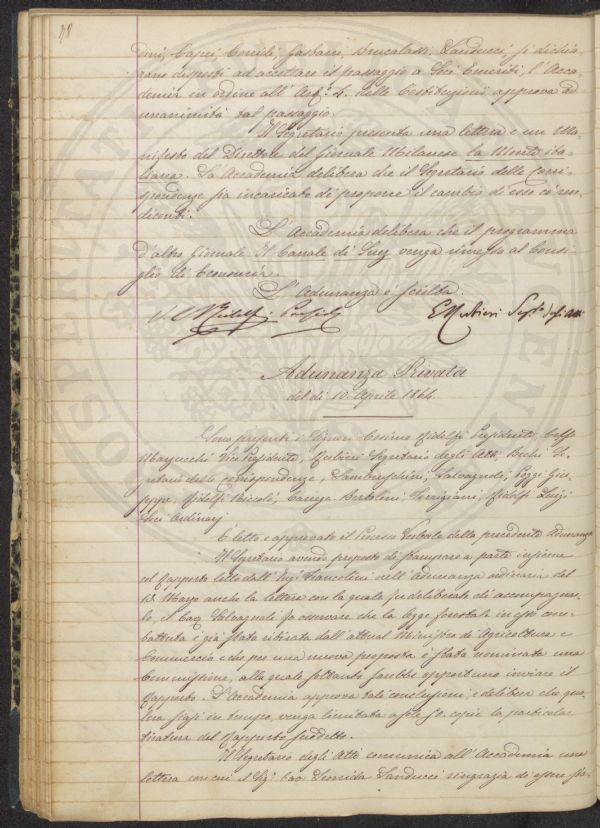 48
dini, Capei, Corridi, Gasbarri, Brucalassi, Landucci, si dichia-
rano disposti ad accettare il passaggio a Soci Emeriti, l'Acca-
demia in ordine all' Art.º 4. delle Costituzioni approva ad
unanimità tal passaggio.
Il Segretario presenta una lettera e un Ma-
nifesto del Direttore del Giornale Milanese la Mente ita-
liana. La Accademia delibera che il Segretario delle corri-
spondenze sia incaricato di proporre il cambio di esse co' ren-
diconti.
L'Accademia delibera che il programma
d'altro Giornale Il Canale di Suez venga rimesso al Consi-
glio di Economia.
L'Adunanza è sciolta.
Adunanza Privata
del dì 10. Aprile 1864.
Sono presenti i Signori Cosimo Ridolfi Presidente,
Marzucchi Vice Presidente, Rubieri Segretario degli Atti, Bechi Se-
gretario delle corrispondenze, Lambruschini, Salvagnoli, Pozzi Giu-
seppe, Ridolfi Niccolò, Carega Bertolini, Ridolfi Luigi
Soci Ordinarj
È letto e approvato il Processo Verbale della precedente Adunanza
Il Segretario avendo proposto di stampare a parte insieme
col Rapporto letto dall' Ing.e Francolini nell' Adunanza ordinaria del
13. Marzo anche la lettera con la quale fu deliberato di accompagnar-
lo, il Cav. Salvagnoli fa osservare che la legge forestale in esso com-
battuta è già stata ritirata dall' attual Ministro di Agricoltura e
Commercio e che per una nuova proposta è stata nominata una
Commissione, alla quale soltanto sarebbe opportuno inviare il
Rapporto. L'Accademia approva tali conclusioni; e delibera che qua-
lora siasi in tempo, venga limitata a sole 50. copie la particolar
tiratura del Rapporto suddetto.
Il Segretario degli Atti comunica all'Accademia una
lettera con cui il Sig. Cav. Leonida Landucci ringrazia di essere sta-